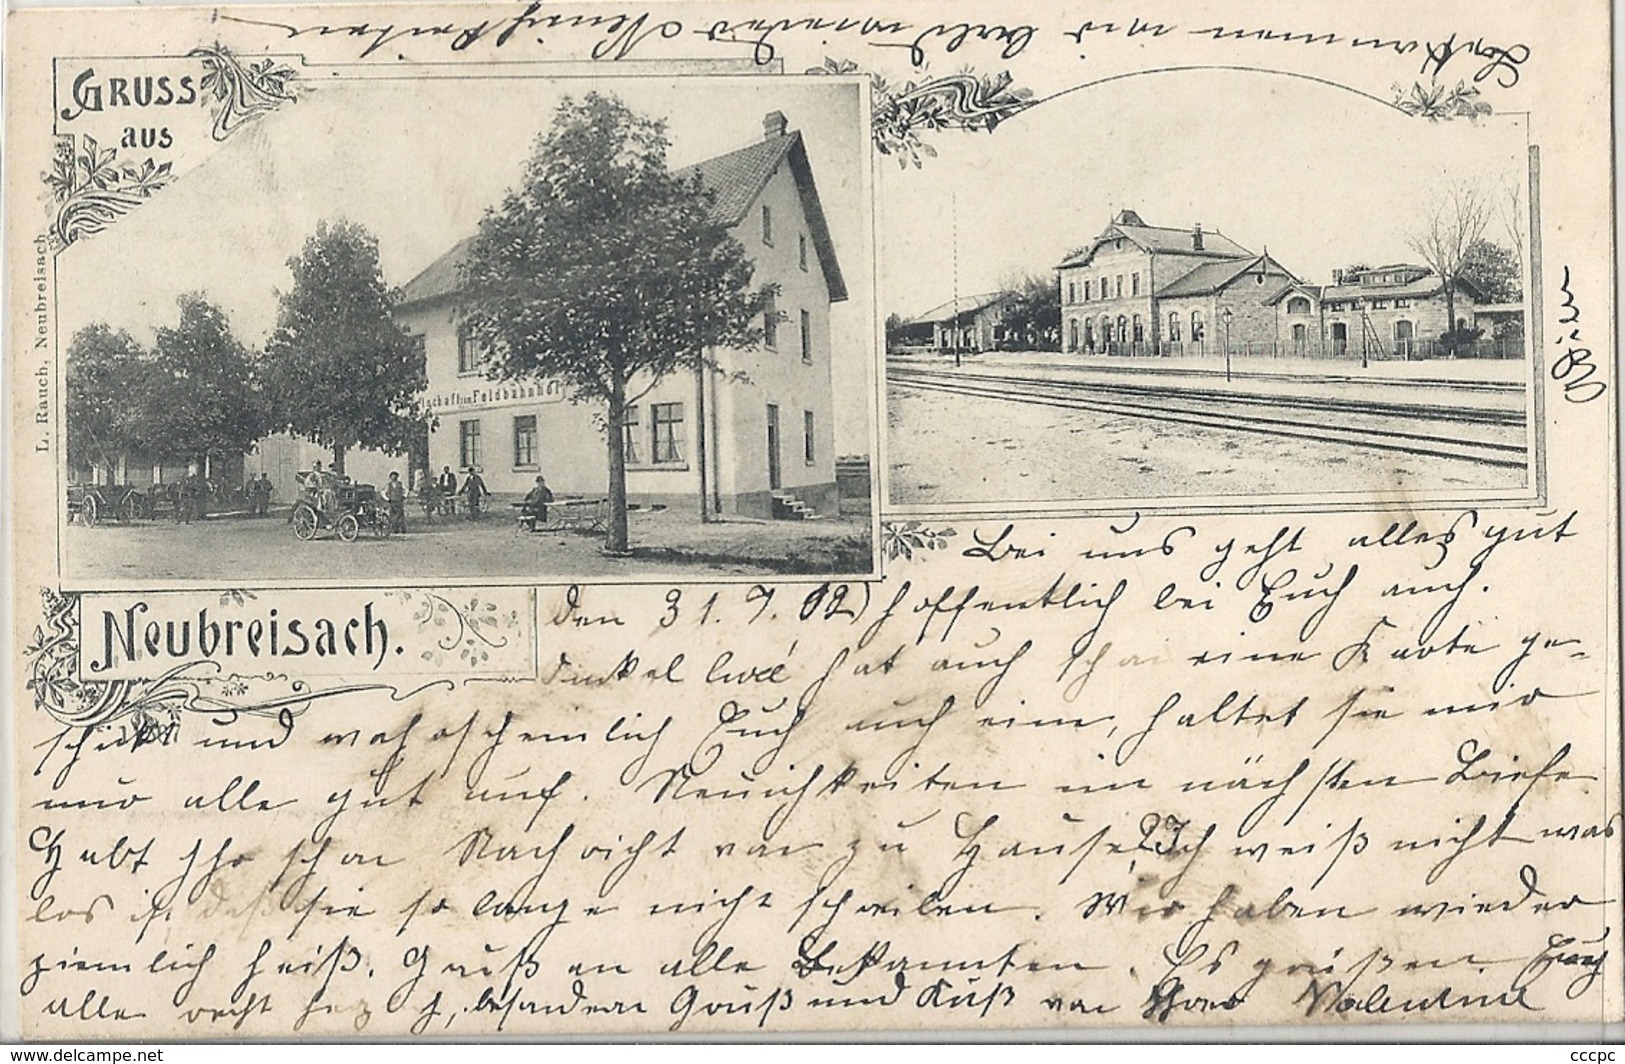 GRUSS
aus
Neubreisach.
L. Rauch, Neubreisach
tschaft zum Feldbahnhof
Bei uns geht alles gut
den 31. 7. 02) hoffentlich bei Euch auch.
Onkel hat auch schon eine Karte ge-
schickt und wahrscheinlich Euch auch eine, haltet sie mir
nur alle gut auf. Neuichkeiten im nächsten Briefe
Habt Ihr schon Nachricht von zu Hause? Ich weiß nicht was
los ist daß sie so lange nicht schreiben. Wir haben wieder
ziemlich heiß. Gruß an alle Bekannten. Es grüßen Euch
alle recht herzl., besonderen Gruß und Kuß von Ihrer Valentine
bekommen wir bald wieder Neuichkeiten
cccpc